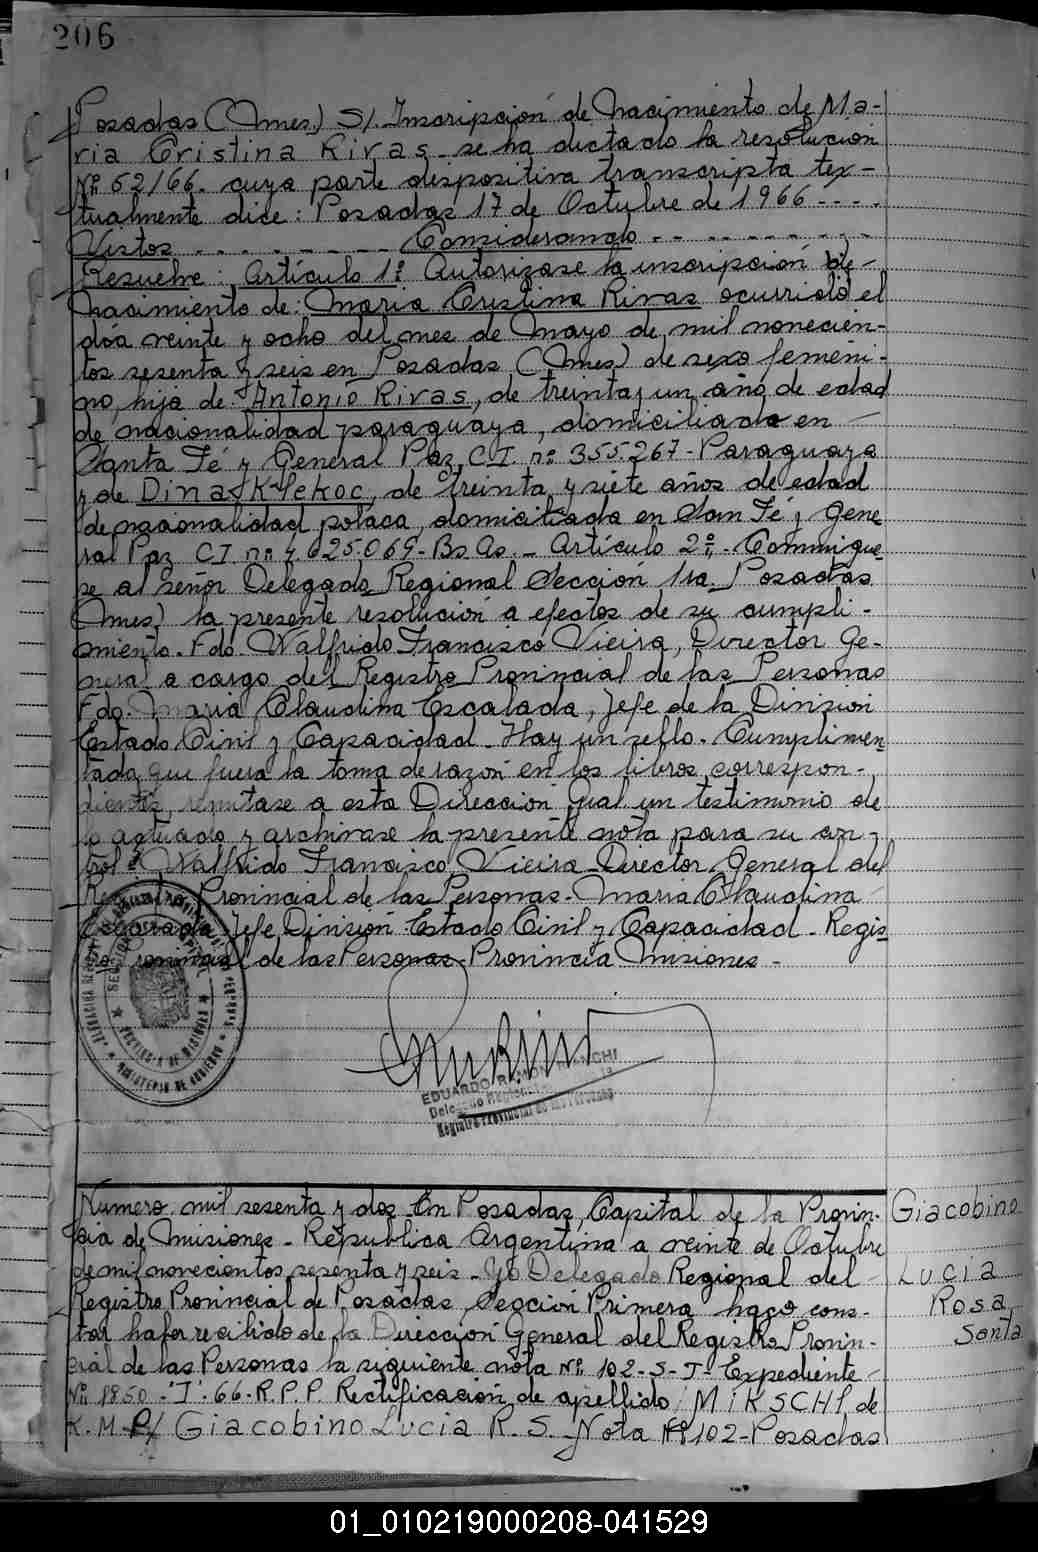 206
Posadas (Mnes.) S/. Inscripción de Nacimiento de Ma-
ria Cristina Rivas - se ha dictado la resolución
Nº 52/66. cuya parte despositiva transcripta tex-
tualmente dice: Posadas 17 de Octubre de 1966 - - - .
Vistos - - - - - - - Considerando - - - - - - - - -
Resuelve: Artículo 1º Autorizase la inscripción de -
Nacimiento de: Maria Cristina Rivas ocurrido el
día veinte y ocho del mes de Mayo de mil novecien-
tos sesenta y seis en Posadas (Mnes) de sexo femeni-
no, hija de Antonio Rivas, de treinta y un año de edad
de nacionalidad paraguaya, domiciliado en -
Santa Fé y General Paz, C.I. nº 355.267 - Paraguaya
y de Dina Klekoc, de treinta y siete años de edad
de nacionalidad polaca, domiciliada en San Fé y Gene
ral Paz C.I. nº 4.625.069 - Bs. As. - Artículo 2º - Comunique-
se al señor Delegado Regional Sección 1ra. Posadas
(Mnes) la presente resolución a efectos de su cumpli-
miento. Fdo. Walfrido Francisco Vieira, Director Ge-
neral a cargo del Registro Provincial de las Personas
Fdo. Maria Claudina Escalada, Jefe de la Division
Estado Civil y Capacidad - Hay un sello. Cumplimen
tada que fuera la toma de razón en los libros correspon-
dientes, remitase a esta Dirección Gral un testimonio de
lo actuado y archivase la presente nota para su con-
trol - Walfrido Francisco Vieira Director General del
Registro Provincial de las Personas - Maria Claudina
Escalada Jefe Division Estado Civil y Capacidad - Regis
tro Provincial de las Personas - Provincia Misiones -
EDUARDO RAMON BIANCHI
Delegado Regional
Registro Provincial de las Personas
Numero mil sesenta y dos - En Posadas, Capital de la Provin-
cia de Misiones - Republica Argentina a veinte de Octubre
de mil novecientos sesenta y seis - Yo Delegado Regional del
Registro Provincial de Posadas, Sección Primera hago cons-
tar haber recibido de la Dirección General del Registro Provin-
cial de las Personas la siguiente nota Nº 102-S-J- Expediente
Nº 1850-"J"-66-R.P.P. Rectificacion de apellido / MIKSCHI, de
K.M. P/ Giacobino Lucia R. S. - Nota Nº 102 - Posadas
Giacobino
Lucia
Rosa
Santa
01_010219000208-041529